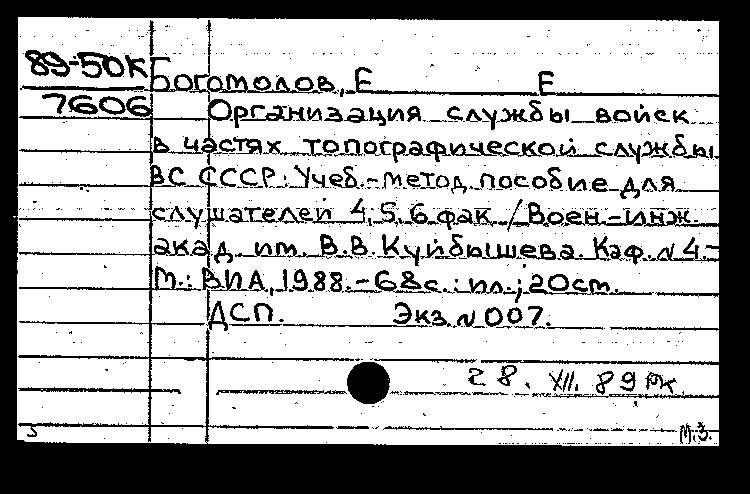 89-50К Богомолов, Е Е
7606 Организация службы войск
в частях топографической службы
ВС СССР: Учеб.-метод. пособие для
слушателей 4, 5, 6 фак. / Воен.-инж.
акад. им. В.В. Куйбышева. Каф. N 4.-
М.: ВИА, 1988.-68с.: ил.; 20см.
ДСП. Экз. N 007.
28. XII. 89
М.З.